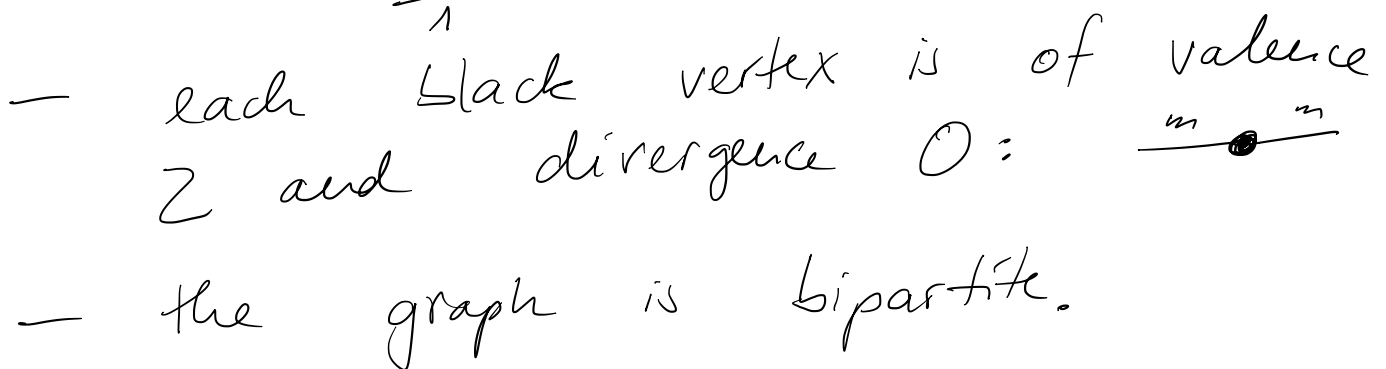 1
— each black vertex is of valence
2 and divergence 0: m m
— the graph is bipartite.